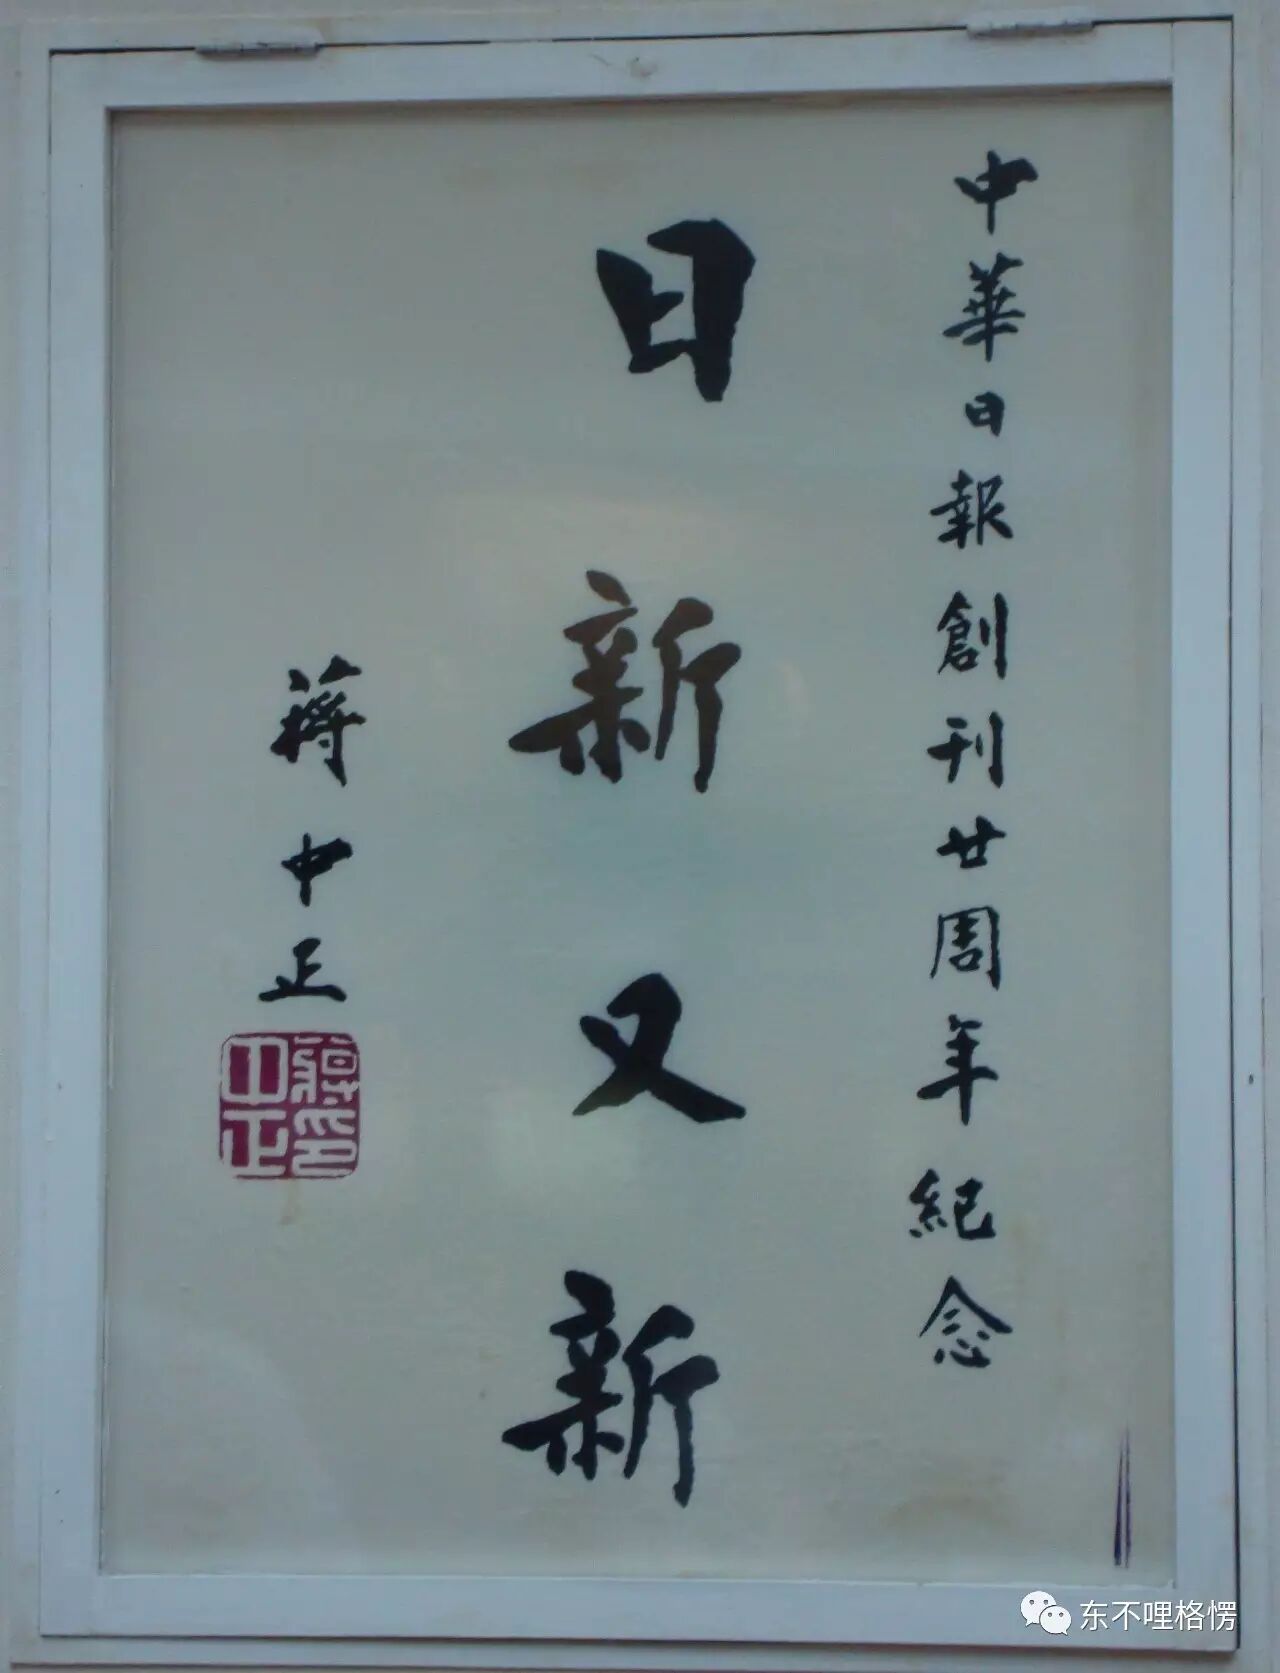 中華日報創刊廿周年紀念
日新又新
蔣中正
蔣中正印
东不哩格愣